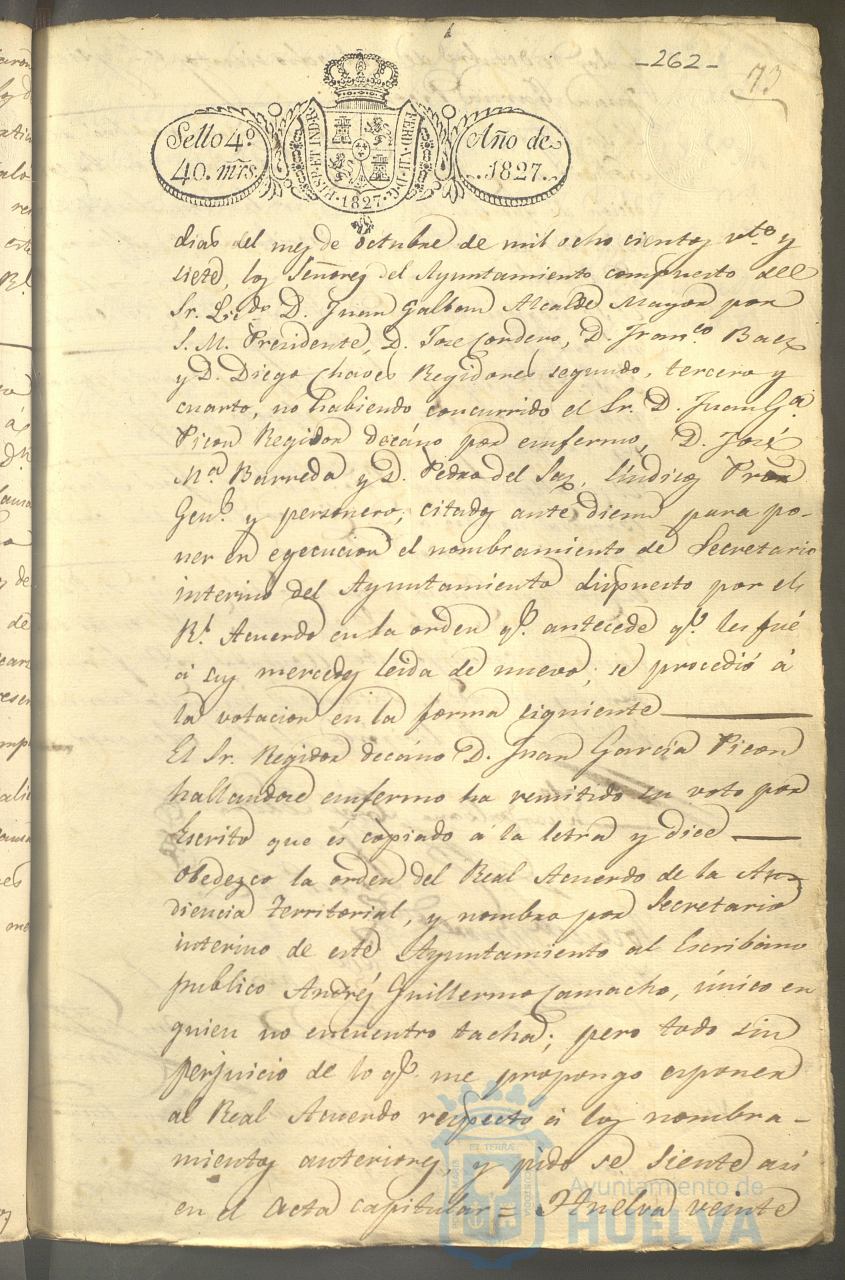 -262-
73
Sello 4º
40. mrs.
HISP. ET IND. R.
FERD. VII. D. G.
1827
Año de
1827.
dias del mes de octubre de mil ocho cientos vte. y
siete, los Señores del Ayuntamiento compuesto del
Sr. Licdo D. Juan Galban Alcalde Mayor por
S. M. Presidente, D. Jose Cordero, D. Franco Baez
y D. Diego Chaves Regidores segundo, tercero y
cuarto, no habiendo concurrido el Sr. D. Juan Ga.
Picon Regidor decáno por enfermo, D. José
Ma. Barreda y D. Pedro del Saz, Síndicos Pror
Genl. y personero; citados ante diem para po-
ner en egecucion el nombramiento de Secretario
interino del Ayuntamiento dispuesto por el
Rl. Acuerdo en la orden qe. antecede qe. les fué
á sus mercedes leida de nuevo; se procedió á
la votacion en la forma siguiente
El Sr. Regidor decáno D. Juan García Picon
hallandose enfermo ha remitido su voto por
Escrito que és copiado á la letra y dice
Obedezco la orden del Real Acuerdo de la Au-
diencia Territorial, y nombro por Secretario
interino de esté Ayuntamiento al Escribano
publico Andrés Guillermo Camacho, único en
quien no encuentro tacha; pero todo sin
perjuicio de lo qe. me propongo esponer
al Real Acuerdo respecto á los nombra-
mientos anteriores, y pido se siente así
en el acta capitular = Huelva veinte
Ayuntamiento de
HUELVA